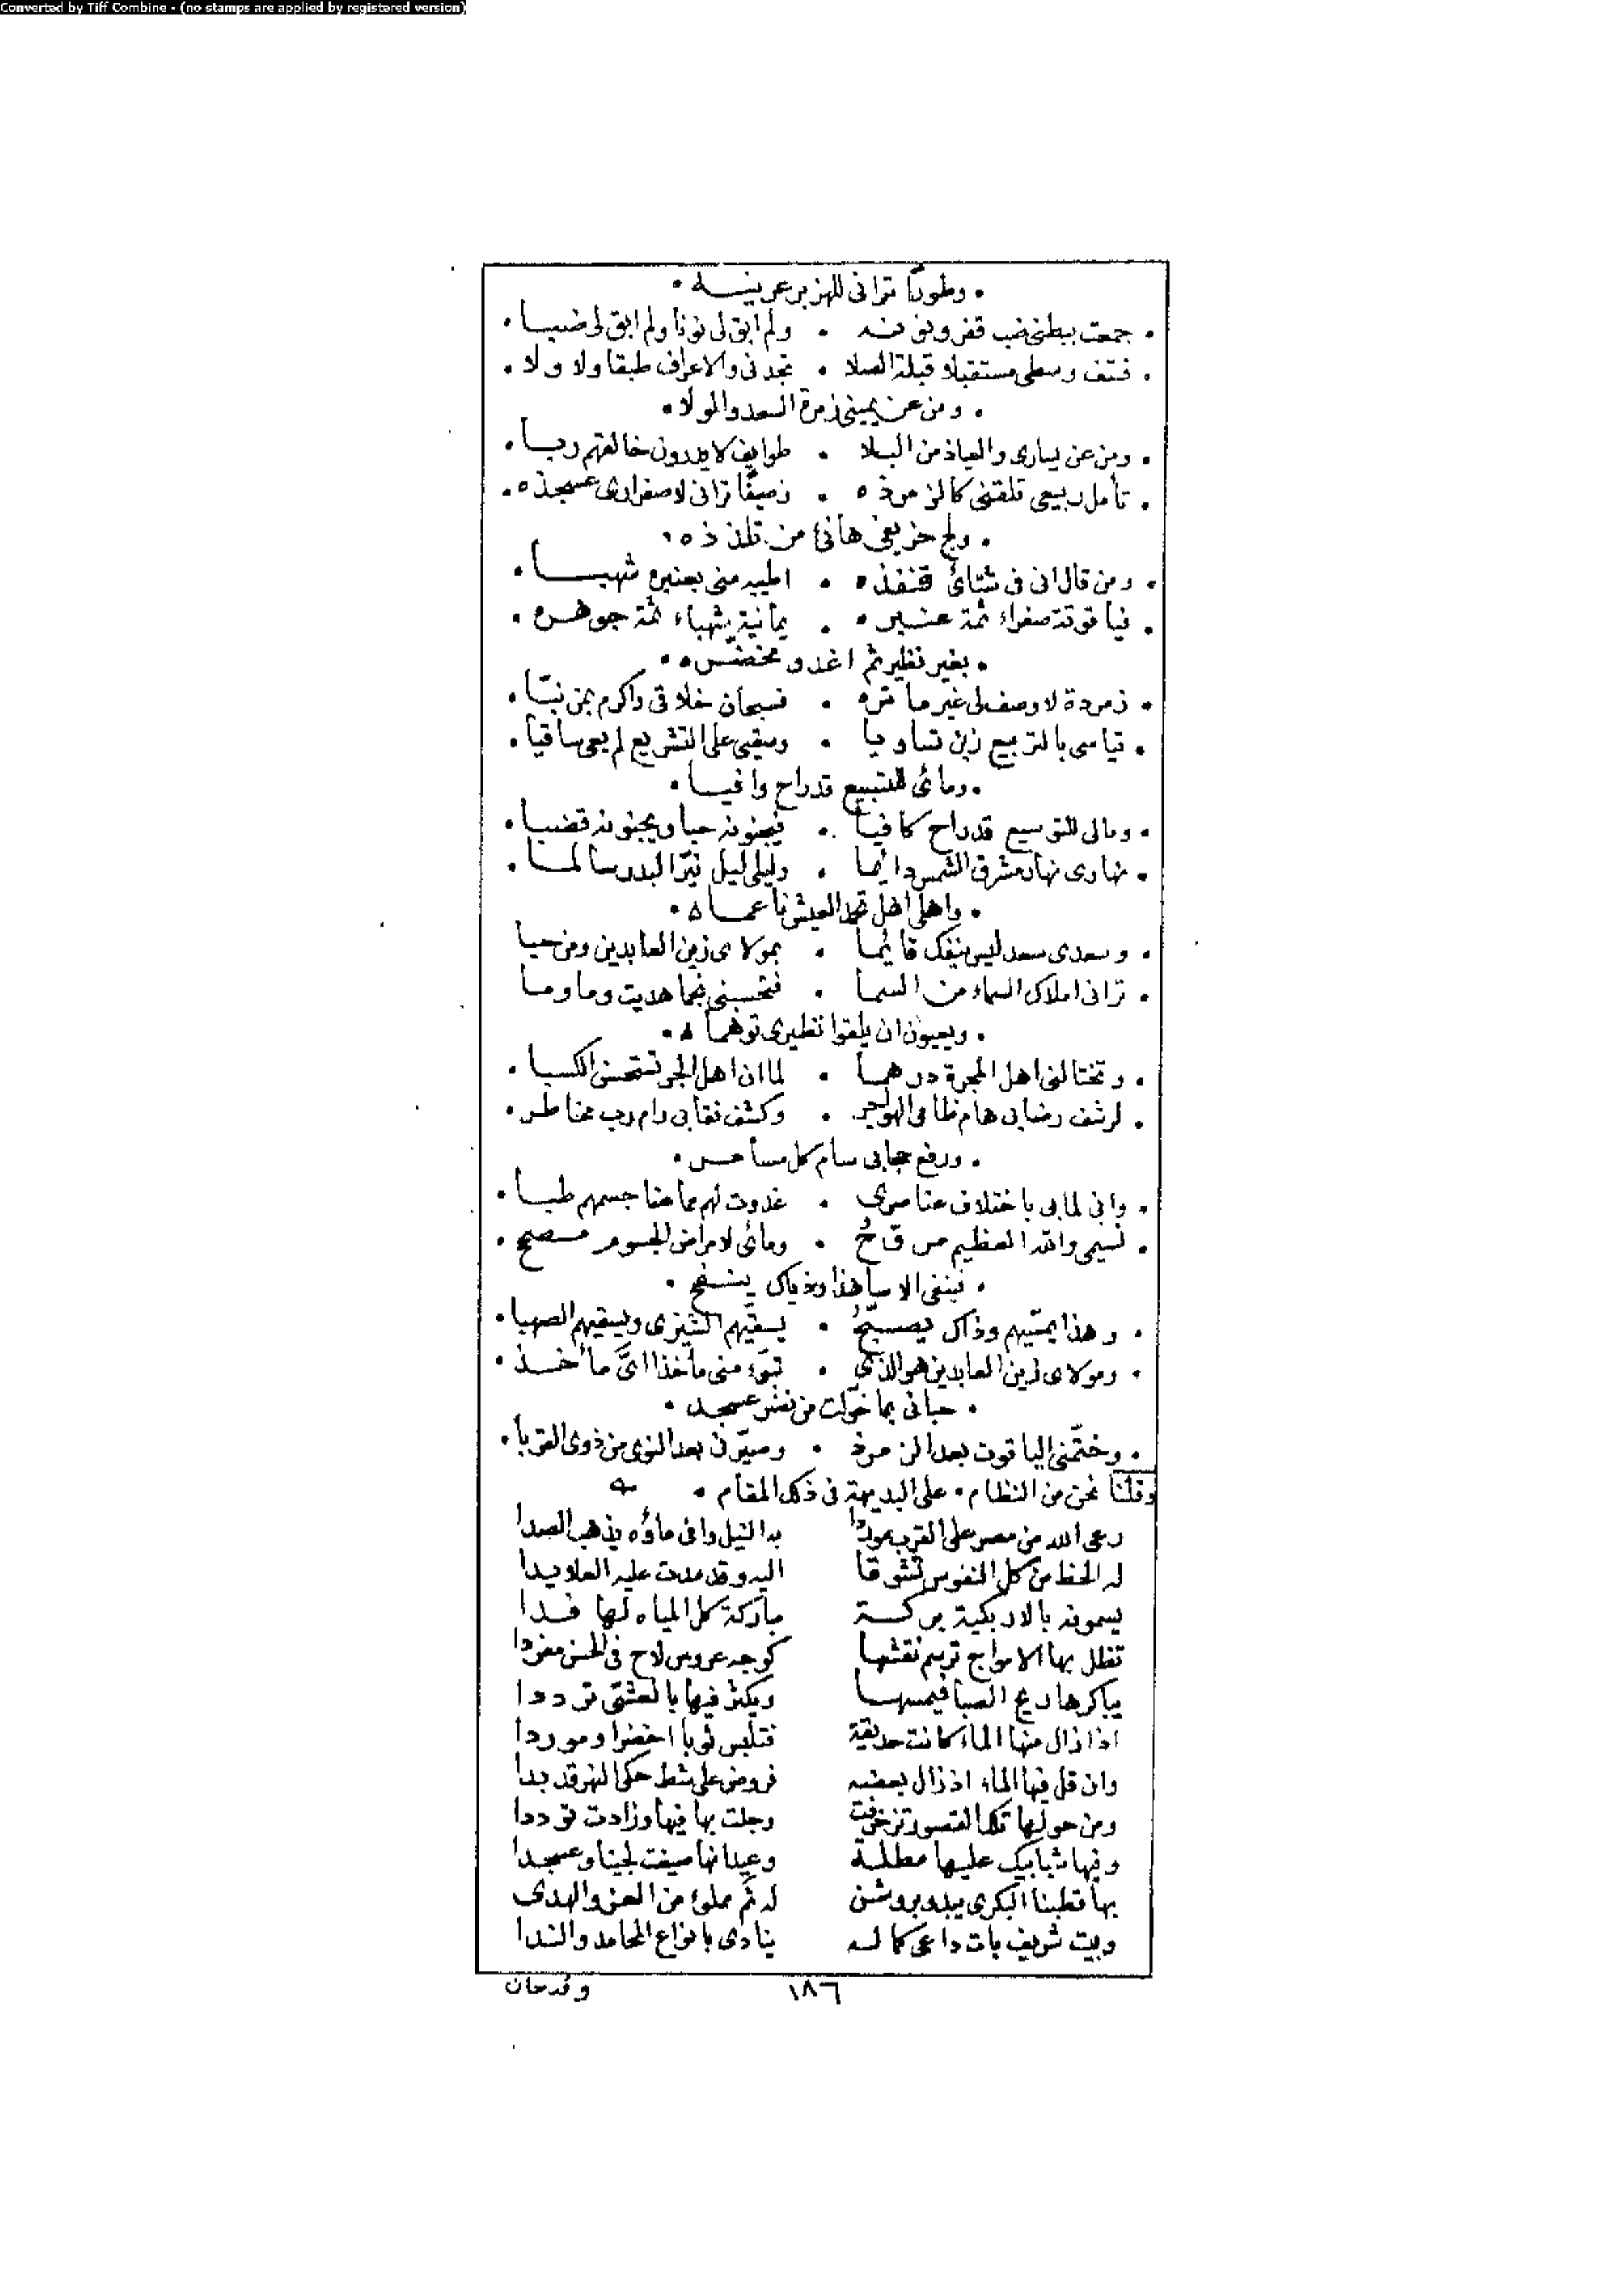 Converted by Tiff Combine - (no stamps are applied by registered version)
• وطورًا ترانى للهزبر عرينــه •
• جمعت ببطنى ضب قفر ونونــه • ولم ابق لى نونا ولم ابق لى ضبــا •
• فتقف وسطى مستقبلا قبلة الصلا • تجدنى والاعراف طبقا ولا ولا •
• ومن عن يمينى زمرة السعد والمولا •
• ومن عن يسارى والعياذ من البــلا • طوايف لا يدرون خالقهم ربــا •
• تأمل ربيعى تلقنى كالزمرذه • وصيفًا ترانى لاصفرارى عسجذه •
• ولج خريفى هانئ من تلذذه •
• ومن قال انى فى شتائ قنفذه • اطيبه منى بعنبرة شهبــا •
• فياقوتة صفراء ثمة عنــبره • يمانية شهباء ثمة جوهــره •
• بغير نظير ثم اغدو مخضّــره •
• زمردة لا وصف لى غير ما تره • فسبحان خلاقى واكرم بمن نبّــا •
• قياسى بالتربيع زين تساويا • وسقيى على التشريع لم يعى ساقيا •
• ومائى للتسبيع قد راح وافيــا •
• ومالى للتوسيع قد راح كافيا • يجنونه حبا ويجنونه قضبــا •
• نهارى نهار مشرق الشمس دائما • وليلى ليل نيّر البدر سالمــا •
• واهلى اهل تحمد العيش ناعمــا •
• وسعدى سعد ليس ينفك قائما • بمولاى زين العابدين ومن حبا
• ترانى املاك السماء من السما • فتحسبنى نجما هديت وما ومــا
• ويعيون ان يلقوا نظيرى توهما •
• وتختالنى اهل المجرة درهما • لما ان اهل الجر تستحسن الكسبا •
• لرشف رضابى هام ظامى الهواجر • وكشف نقابى رام رب مخاطــر •
• ورفع حجابى سام كل مسامــر •
• وانى لما بى باختلاف عناصرى • غدوت لهم مما عنا جسمهم طبــا •
• نسيمى والله العظيم مروّحُ • ومائى لامراض الجسوم مــصحح •
• فينفى الاسا هذا وذياك ينــفح •
• وهذا يمسّيهم وذاك يصبّحُ • يسقّيهم الشيزى ويسقيهم الصهبا •
• ومولاى زين العابدين هو الذى • تبوّء منى مأخذا اىَّ مأخــذ •
• حبانى بما خوّلت من نشر عسجــد •
• وختّمنى الياقوت بعد الزمرذ • وصيّرنى بعد النوى من ذوى القربا •
وقلنا نحن من النظام • على البديهة فى ذلك المقام •
رعى الله من مصر على القرب موردا به النيل وافى ماؤه يذهب الصدا
له الحظ من كل النفوس تشوقا اليه وقد مدت عليه العلا يدا
يسمونه بالازبكية بركــة مباركة كل المياه لها فــدا
تظل بها الامواج ترسم نقشها كوجه عروس لاح فى الحسن مفردا
يباكرها ريح الصبا فيمسهــا ويكثر فيها بالعشى ترددا
اذا زال منها الماء كانت حديقة فتلبس ثوبا اخضرا وموردا
وان قل فيها الماء اذ زال بعضه فروض على شط حكى النهر قد بدا
ومن حولها تلك القصور تزخرفت وجلت بها فيها وزادت توددا
وفيها شبابيك عليها مطلــة وعيدانها صيغت لجينا وعسجدا
بها قطبنا البكرى يبدو بروشن له ثم ملئ من العز والهدى
وبيت شريف بات داعى كماله ينادى بانواع المحامد والندا
١٨٦
وقد حان